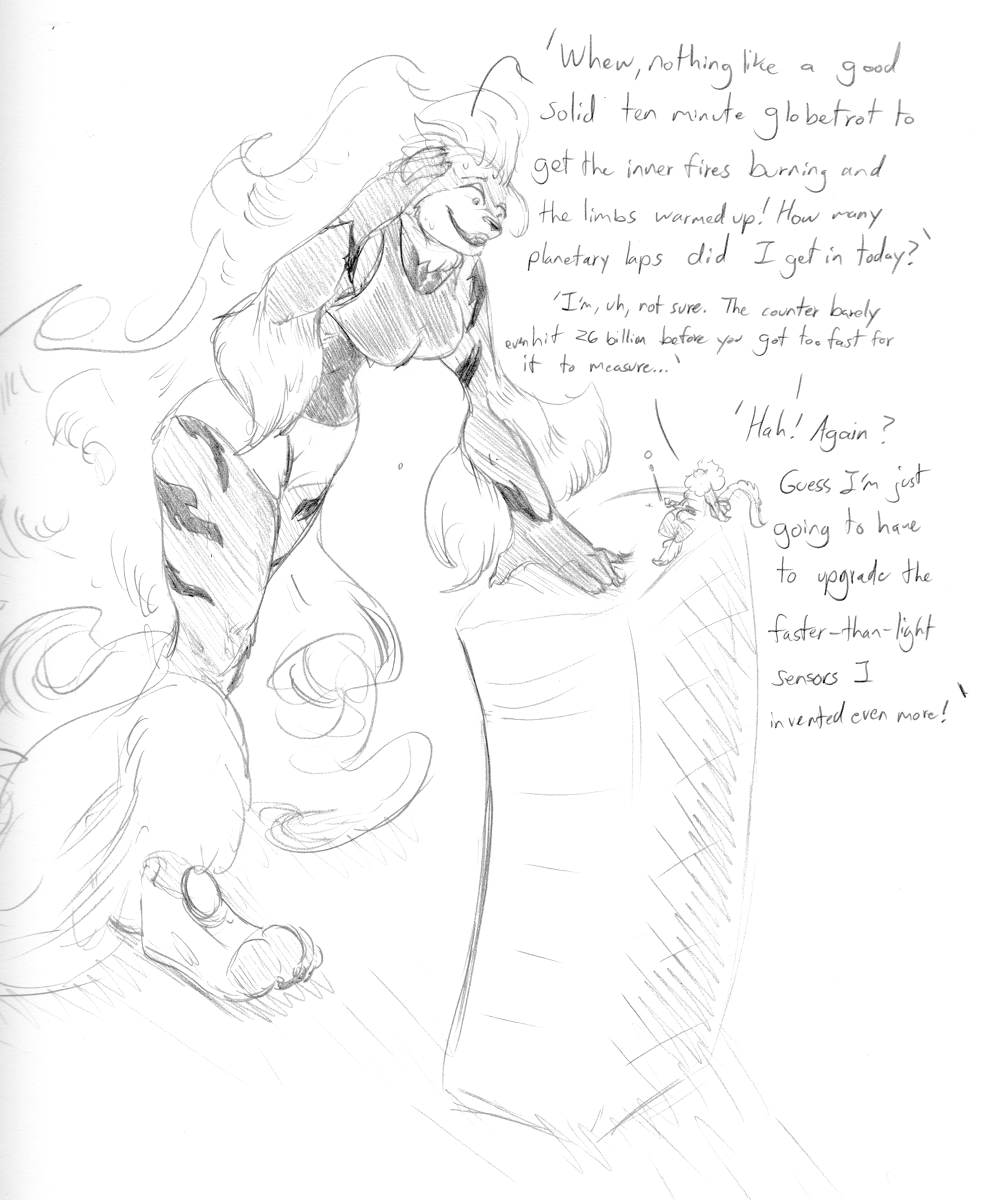 'Whew, nothing like a good
solid ten minute globetrot to
get the inner fires burning and
the limbs warmed up! How many
planetary laps did I get in today?'
'I'm, uh, not sure. The counter barely
even hit 26 billion before you got too fast for
it to measure...'
'Hah! Again?
Guess I'm just
going to have
to upgrade the
faster-than-light
sensors I
invented even more!'